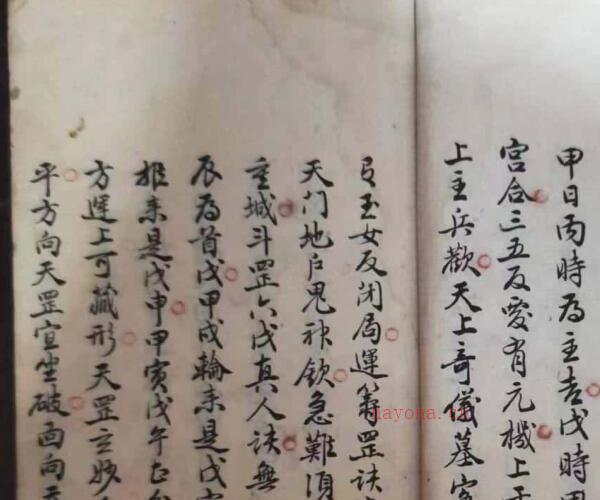 甲日丙時為主吉戊時
宮合三五反爱有元機上
上主兵歡天上奇儀墓
玉女反闭局運籌罡訣
天门地户鬼神欽急難須
重城斗罡六戊真人訣無
辰為首戊甲戌輪来是戊
推来是戊申甲寅戊午
方遅上可藏形天罡立妙
平方向天罡宜坐破面向天
jiayona